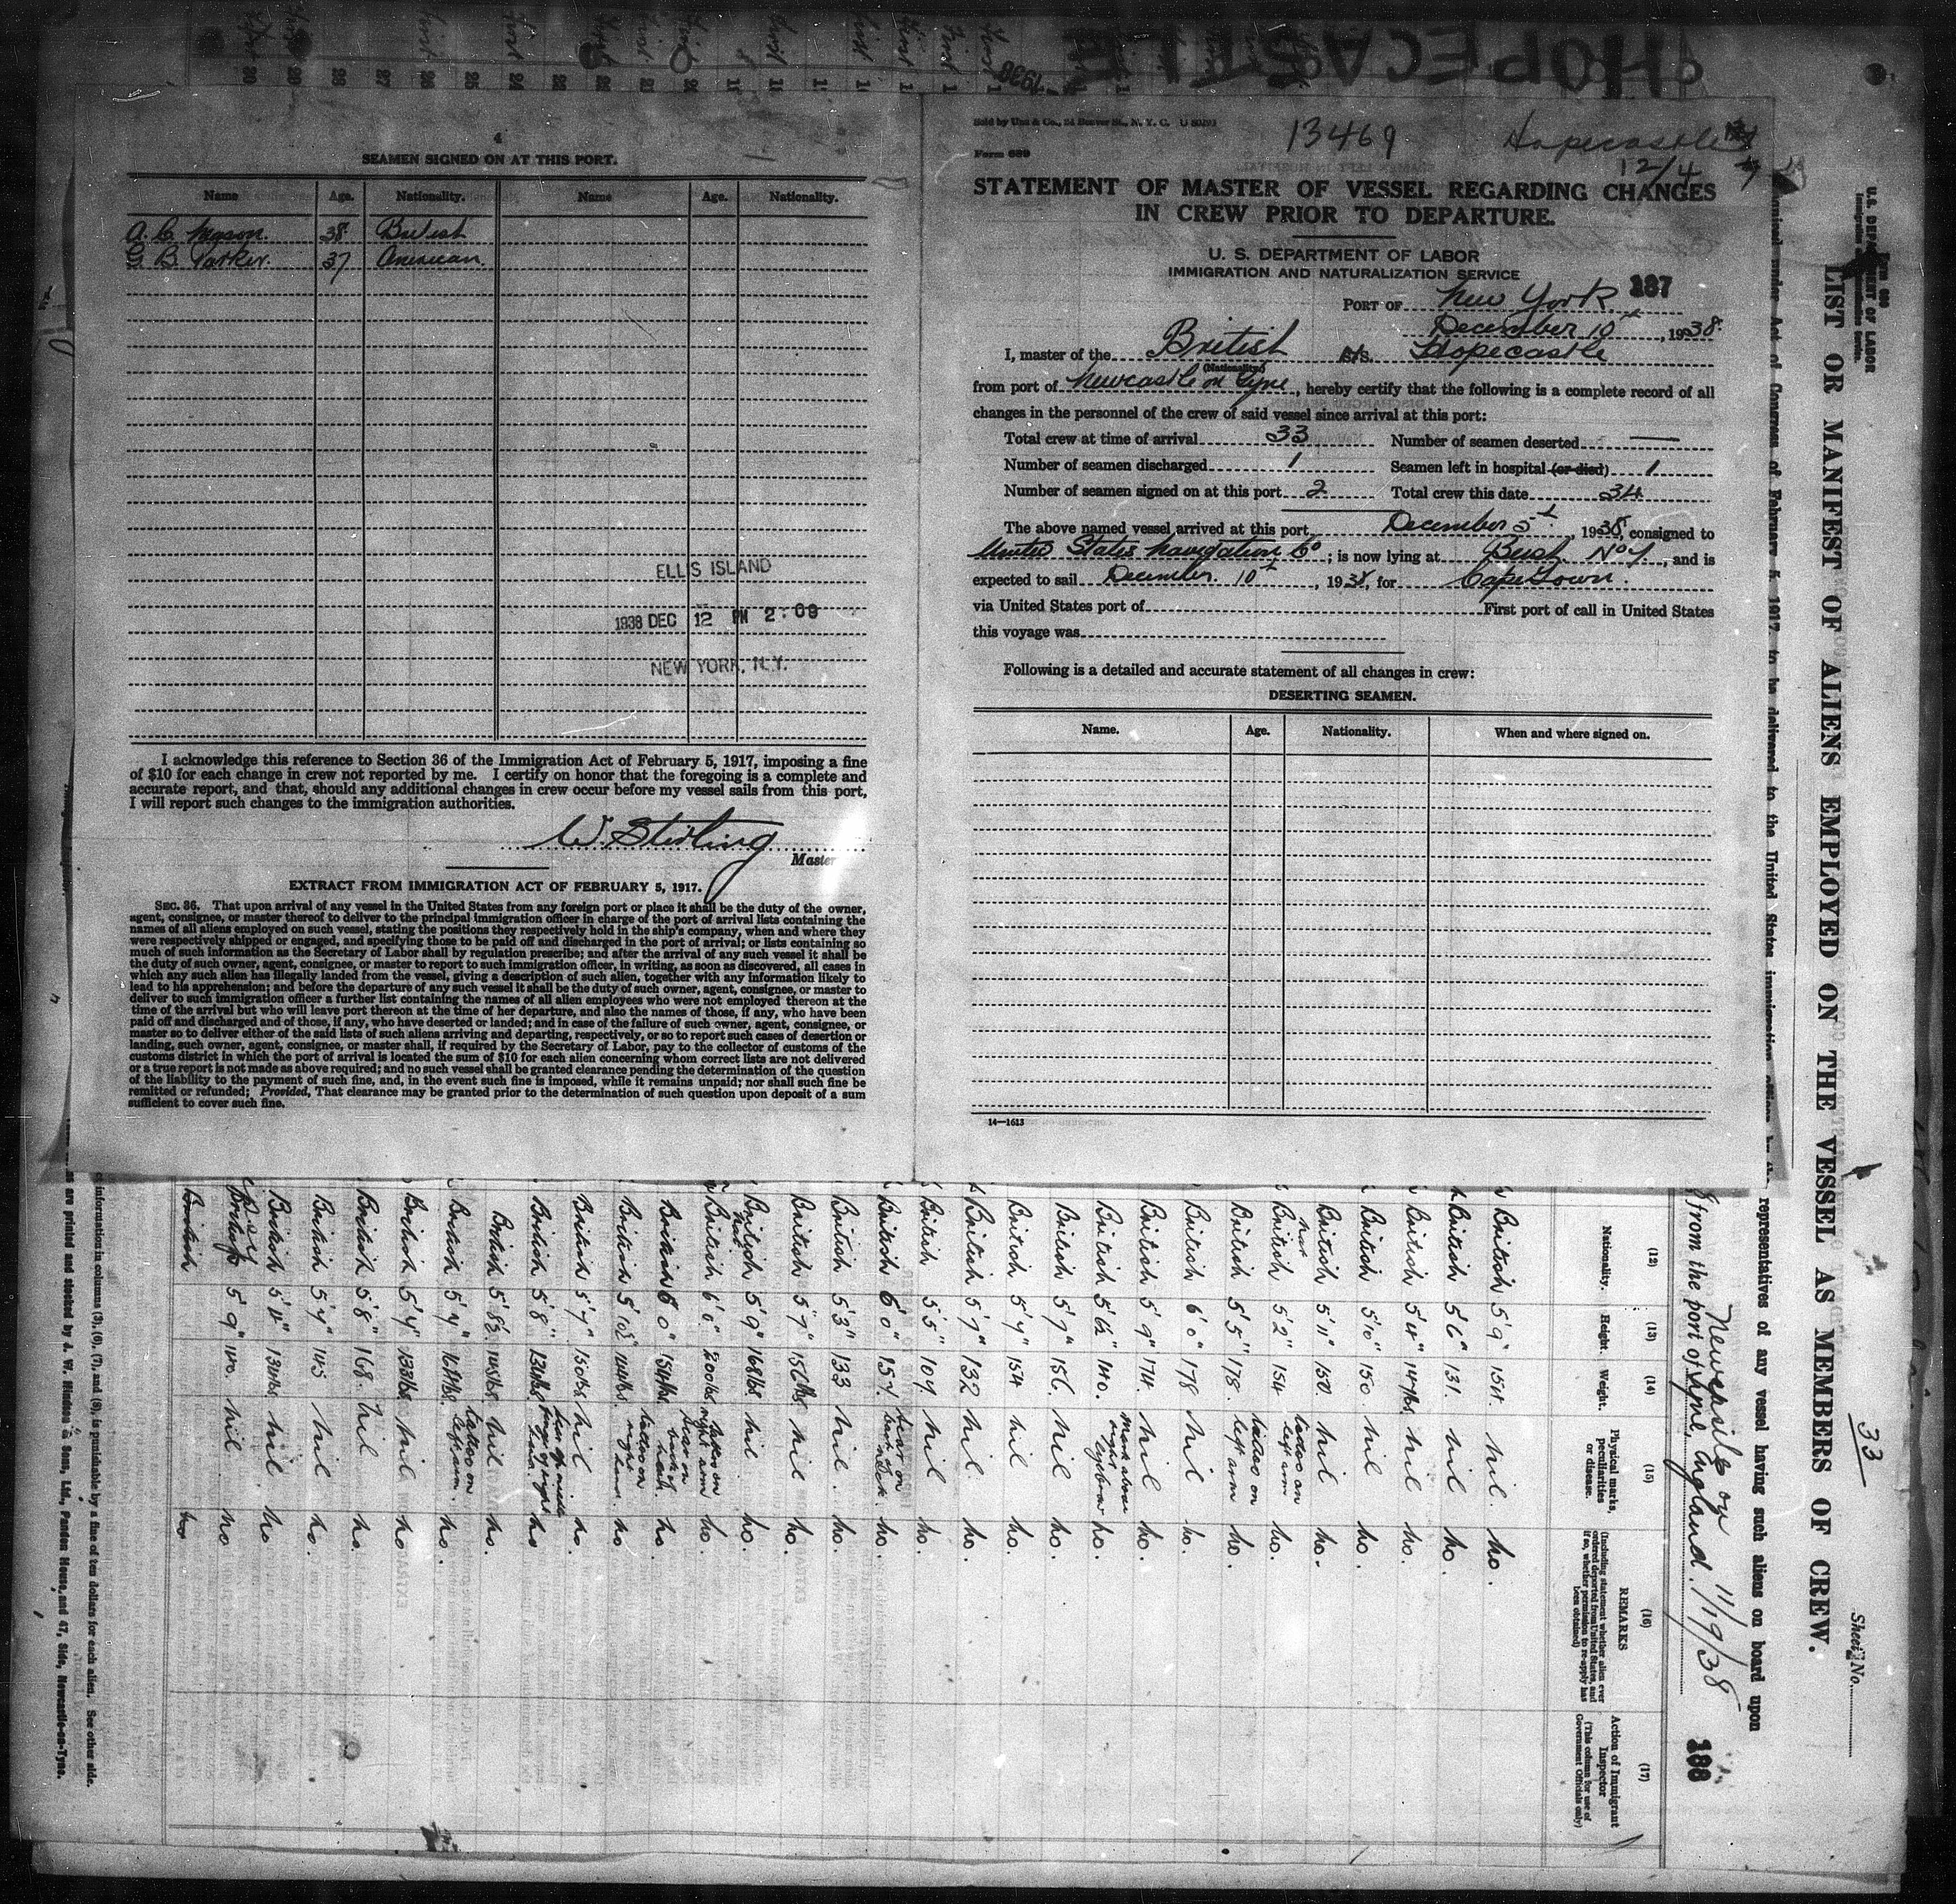 HOPECASTLE
1938
4
SEAMEN SIGNED ON AT THIS PORT.
Name Age. Nationality. Name Age. Nationality.
A. C. Mason. 38 British
G B Parker. 37 American.
ELLIS ISLAND
1938 DEC 12 PM 2:09
NEW YORK, N.Y.
I acknowledge this reference to Section 36 of the Immigration Act of February 5, 1917, imposing a fine
of $10 for each change in crew not reported by me. I certify on honor that the foregoing is a complete and
accurate report, and that, should any additional changes in crew occur before my vessel sails from this port,
I will report such changes to the immigration authorities.
W. Stirling
Master
EXTRACT FROM IMMIGRATION ACT OF FEBRUARY 5, 1917.
SEC. 36. That upon arrival of any vessel in the United States from any foreign port or place it shall be the duty of the owner,
agent, consignee, or master thereof to deliver to the principal immigration officer in charge of the port of arrival lists containing the
names of all aliens employed on such vessel, stating the positions they respectively hold in the ship's company, when and where they
were respectively shipped or engaged, and specifying those to be paid off and discharged in the port of arrival; or lists containing so
much of such information as the Secretary of Labor shall by regulation prescribe; and after the arrival of any such vessel it shall be
the duty of such owner, agent, consignee, or master to report to such immigration officer, in writing, as soon as discovered, all cases in
which any such alien has illegally landed from the vessel, giving a description of such alien, together with any information likely to
lead to his apprehension; and before the departure of any such vessel it shall be the duty of such owner, agent, consignee, or master to
deliver to such immigration officer a further list containing the names of all alien employees who were not employed thereon at the
time of the arrival but who will leave port thereon at the time of her departure, and also the names of those, if any, who have been
paid off and discharged and of those, if any, who have deserted or landed; and in case of the failure of such owner, agent, consignee, or
master so to deliver either of the said lists of such aliens arriving and departing, respectively, or so to report such cases of desertion or
landing, such owner, agent, consignee, or master shall, if required by the Secretary of Labor, pay to the collector of customs of the
customs district in which the port of arrival is located the sum of $10 for each alien concerning whom correct lists are not delivered
or a true report is not made as above required; and no such vessel shall be granted clearance pending the determination of the question
of the liability to the payment of such fine, and, in the event such fine is imposed, while it remains unpaid; nor shall such fine be
remitted or refunded; Provided, That clearance may be granted prior to the determination of such question upon deposit of a sum
sufficient to cover such fine.
13469 Hopecastle
12/4
Form 689
STATEMENT OF MASTER OF VESSEL REGARDING CHANGES
IN CREW PRIOR TO DEPARTURE.
U. S. DEPARTMENT OF LABOR
IMMIGRATION AND NATURALIZATION SERVICE
187
PORT OF New York
December 10th, 1938.
I, master of the British S.S. Hopecastle
(Nationality)
from port of Newcastle on Tyne, hereby certify that the following is a complete record of all
changes in the personnel of the crew of said vessel since arrival at this port:
Total crew at time of arrival 33 Number of seamen deserted —
Number of seamen discharged 1 Seamen left in hospital (or died) 1
Number of seamen signed on at this port 2 Total crew this date 34
The above named vessel arrived at this port December 5th, 1938, consigned to
United States Navigation Co; is now lying at Bush No 7, and is
expected to sail December 10th, 1938, for Cape Town.
via United States port of First port of call in United States
this voyage was
Following is a detailed and accurate statement of all changes in crew:
DESERTING SEAMEN.
Name. Age. Nationality. When and where signed on.
14—1613
33
Sheet No.
LIST OR MANIFEST OF ALIENS EMPLOYED ON THE VESSEL AS MEMBERS OF CREW.
representatives of any vessel having such aliens on board upon
from the port of Tyne, England. 11/19/38 188
(12) (13) (14) (15) (16) (17)
Nationality. Height. Weight. Physical marks, peculiarities or disease. REMARKS (Including statement whether alien ever ordered deported from United States, and if so, whether permission to re-apply has been obtained) Action of Immigrant Inspector (This column for use of Government Officials only)
British 5'9" 154. nil. no.
British 5'6" 131. nil no.
British 5'4" 147lbs nil no.
British 5'10" 150. nil no.
British 5'11" 150 nil no.
British 5'2" 154 tattoo on left arm no.
British 5'5" 178. tattoo on left arm no.
British 6'0" 178 nil no.
British 5'9" 174. nil no.
British 5'6½" 140. mark above right eyebrow no.
British 5'7" 156. nil no.
British 5'7" 154 nil no.
British 5'7" 132 nil no.
British 5'5" 107. nil no.
British 6'0" 157. no.
British 5'3" 133 nil. no.
British 5'7" 156lbs nil no.
British 5'9" 168lbs nil no.
British 6'0" 200lbs no.
British no.
British no
British 5'7" 150lbs nil no.
British 5'8" no
British 5'8½ nil no.
British 5'7" tattoo on no.
British 5'4" 133lbs nil no
British 5'8" 168. nil no.
British 5'7" 145 nil no.
British 5'4" 134lbs nil no
5'9" 140. nil no
British no
information in columns (3), (6), (7), and (8), is punishable by a fine of ten dollars for each alien. See other side.
are printed and stocked by J. W. Hinton & Sons, Ltd., Pandon House, and 47, Side, Newcastle-on-Tyne.